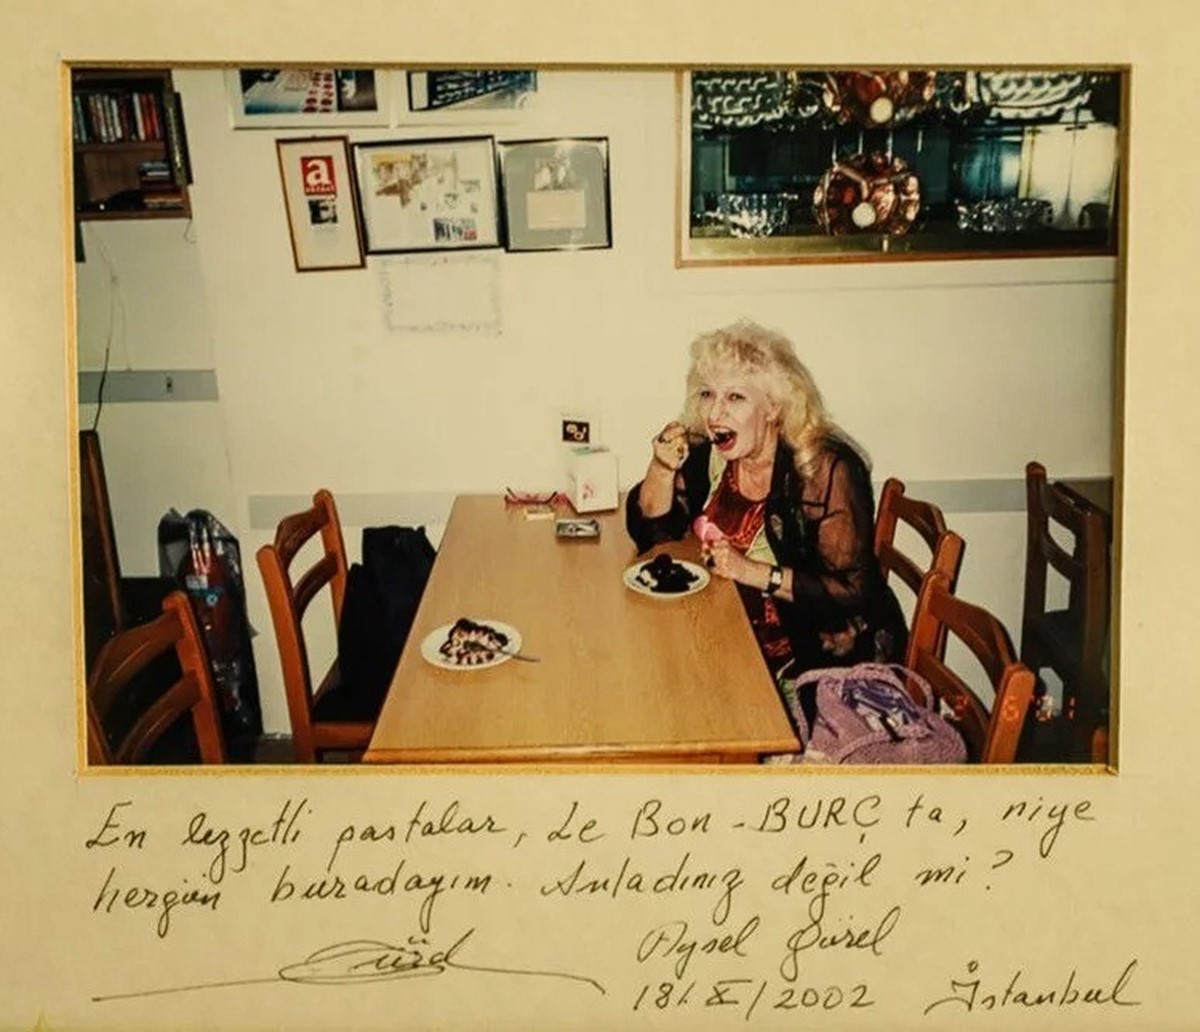 a
En lezzetli pastalar, Le Bon-BURÇ ta, niye
hergün buradayım. Anladınız değil mi?
Gürel
Aysel Gürel
18/.X/2002 İstanbul